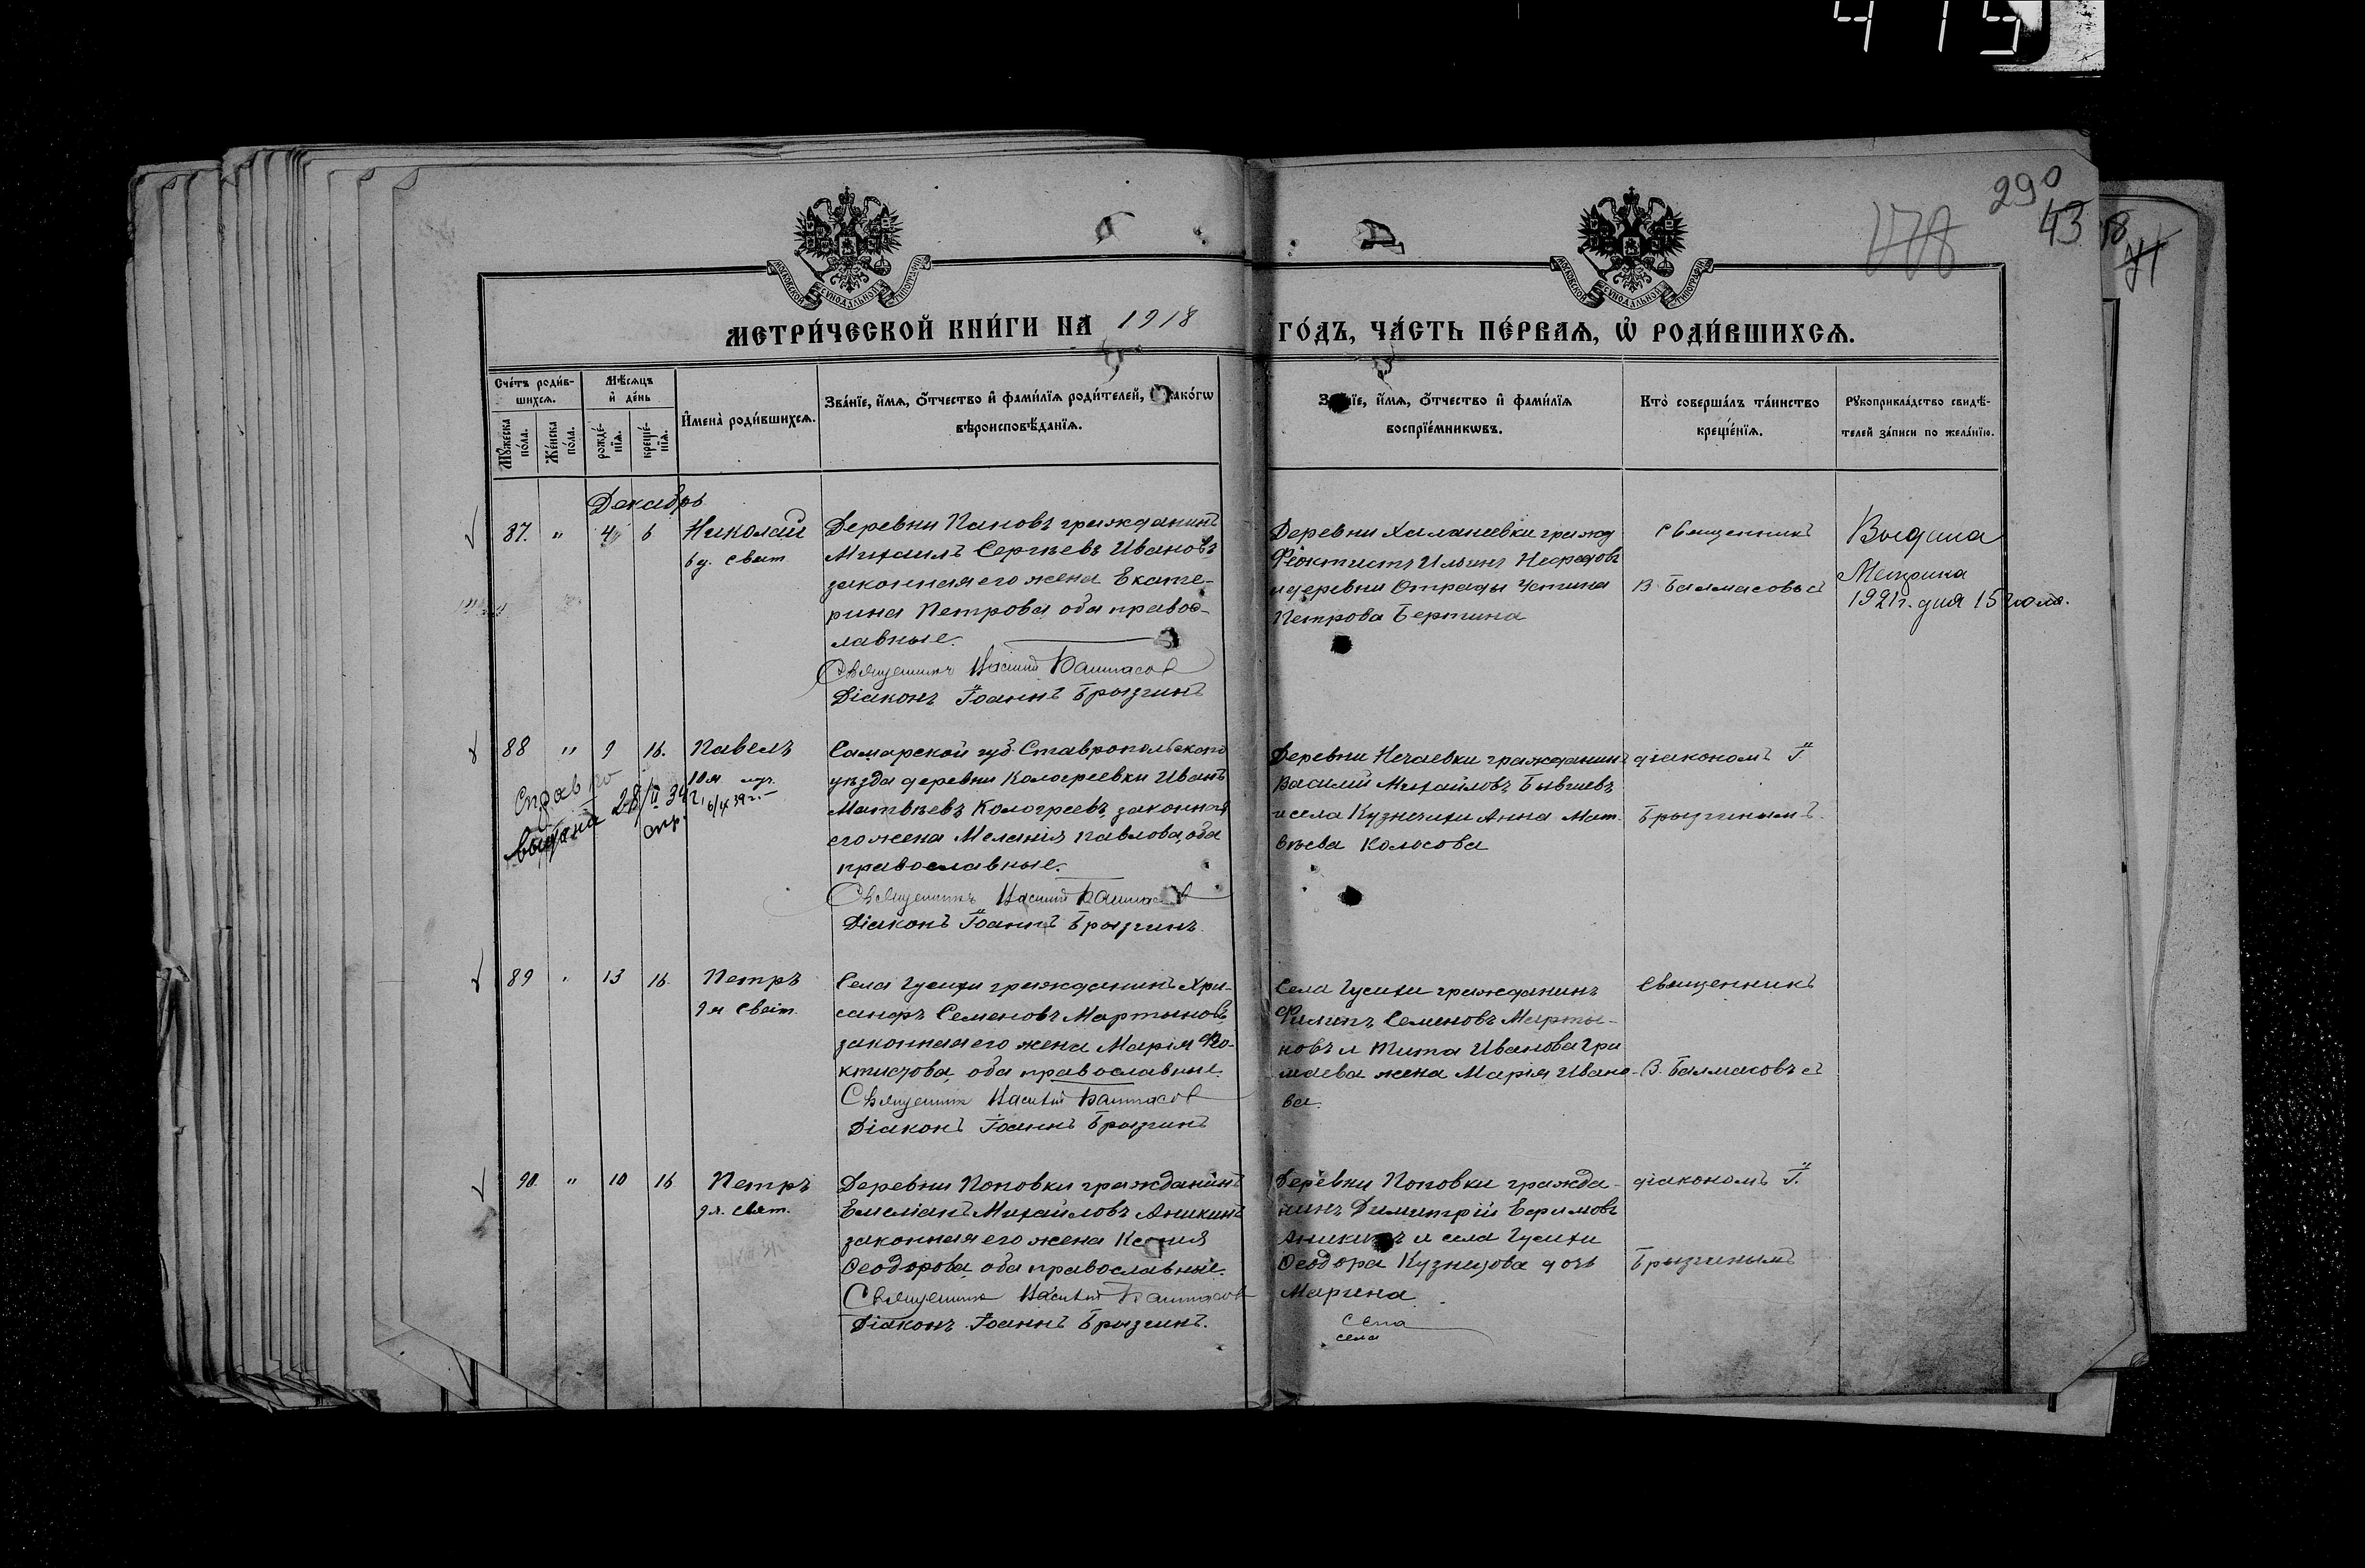 415
290
178
43
18
71
МОСКОВСКОЙ СѴНОДАЛЬНОЙ ТИПОГРАФІИ
МОСКОВСКОЙ СѴНОДАЛЬНОЙ ТИПОГРАФІИ
МЕТРИ́ЧЕСКОЙ КНИ́ГИ НА 1918
ГО́ДЪ, ЧА́СТЬ ПЕ́РВАѦ, Ѡ҆ РОДИ́ВШИХСѦ.
Сче́тъ роди́в-
шихсѧ.
Мꙋ́жеска по́ла.
Же́нска по́ла.
Мѣ́сѧцъ
и҆ де́нь
рожде́-
нїѧ.
креще́-
нїѧ.
И҆мена̀ роди́вшихсѧ.
Зва́нїе, и҆́мѧ, ѻ҆́тчество и҆ фами́лїѧ роди́телей, и҆ како́гѡ
вѣроисповѣ́данїѧ.
Зва́нїе, и҆́мѧ, ѻ҆́тчество и҆ фами́лїѧ
воспрїе́мникѡвъ.
Кто̀ соверша́лъ та́инство
креще́нїѧ.
Рꙋкоприкла́дство свидѣ́-
телей за́писи по жела́нїю.
Декабрь
87. " 4 6 Николай
6 д. свят.
Деревни Пановъ гражданинъ
Михаилъ Сергѣевъ Ивановъ
законная его жена Екате-
рина Петрова оба правос-
лавные.
Священникъ Василій Балмасов
Діаконъ Іоаннъ Брызгинъ
Деревни Халанеевки гражд
Феоктистъ Ильинъ Нефедовъ
и деревни Отрады
Петрова Бертина
Священникъ
В. Балмасовъ
Выдана
Метрика
1921 г. дня 15 июля.
88 " 9 16. Павелъ
10 я
6/IX 39 г.
Справка
выдана 28/II 39 г.
Самарской губ Ставропольскаго
уѣзда деревни Кологреевки Иванъ
Матвѣевъ Кологреевъ, законная
его жена Меланія Павлова, оба
православные.
Священникъ Василій Балмасов
Діаконъ Іоаннъ Брызгинъ.
Деревни Нечаевки гражданинъ
Василий Михайловъ Бывшевъ
и села Кузнечихи Анна Мат-
вѣева Колосова
діакономъ І.
Брызгинымъ.
89 " 13 16. Петръ
я свят.
Села Гусихи гражданинъ Хри-
санфъ Семеновъ Мартыновъ,
законная его жена Марія Фео-
ктистова, оба православные.
Священник Василій Балмасов
Діаконъ Іоаннъ Брызгинъ
Села Гусихи гражданинъ
Филипъ Семеновъ Марты-
новъ и Тита Иванова Гри
шаева жена Марія Ивано-
ва.
Священникъ
В. Балмасовъ
90. " 10 16 Петръ
я. свят.
Деревни Поповки гражданинъ
Емеліанъ Михайловъ Аникинъ
законная его жена Ксенія
Ѳеодорова, оба православные.
Священник Василій Балмасов
Діаконъ Іоаннъ Брызгинъ.
Деревни Поповки гражда-
нинъ Димитрій Ефимовъ
Аникинъ и села Гусихи
Ѳеодора Кузнецова дочь
Марина.
села
села
діакономъ І.
Брызгинымъ